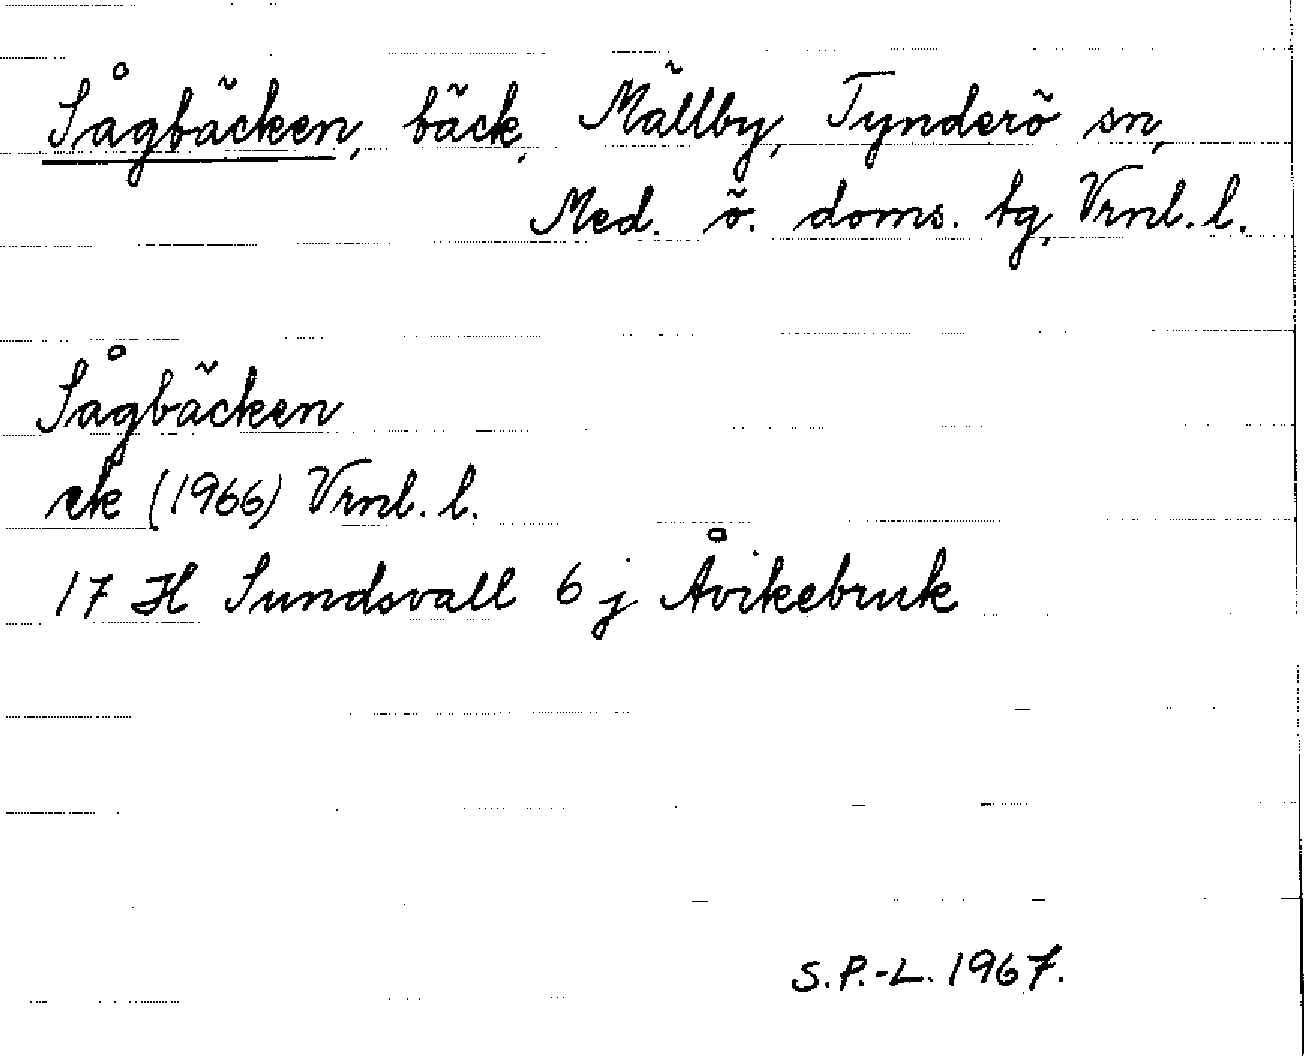 Sågbäcken, bäck, Mällby, Tynderö sn,
Med. ö. doms. tg, Vrnl. l.
Sågbäcken
ek (1966) Vrnl. l.
17 H Sundsvall 6 j Åvikebruk
S.P.-L. 1967.